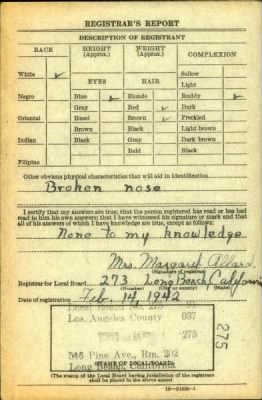 REGISTRAR'S REPORT
DESCRIPTION OF REGISTRANT
RACE HEIGHT (Approx.) WEIGHT (Approx.) COMPLEXION
White ✓ Sallow
EYES HAIR Light
Negro Blue ✓ Blonde Ruddy ✓
Gray Red Dark
Oriental Hazel Brown ✓ Freckled
Brown Black Light brown
Indian Black Gray Dark brown
Bald Black
Filipino
Other obvious physical characteristics that will aid in identification
Broken nose
I certify that my answers are true; that the person registered has read or has had
read to him his own answers; that I have witnessed his signature or mark and that
all of his answers of which I have knowledge are true, except as follows:
None to my knowledge
Mrs. Margaret Allard
(Signature of registrar)
Registrar for Local Board 273 Long Beach California
(Number) (City or county) (State)
Date of registration Feb. 14, 1942
Los Angeles County 037
275
275
546 Pine Ave., Rm. 202
Long Beach, California
(STAMP OF LOCAL BOARD)
(The stamp of the Local Board having jurisdiction of the registrant
shall be placed in the above space)